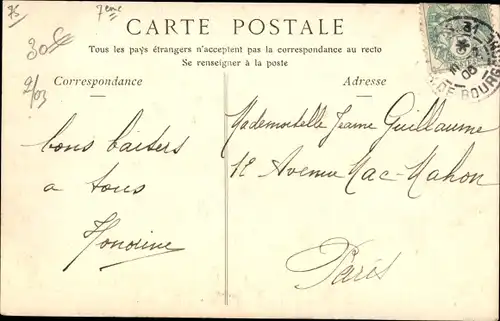 75
7ème
30€
2/03
CARTE POSTALE
Tous les pays étrangers n'acceptent pas la correspondance au recto
Se renseigner à la poste
Correspondance
Adresse
bons baisers
a tous
Honorine
Mademoiselle Jeanne Guillaume
12 Avenue Mac-Mahon
Paris
DE BOUR